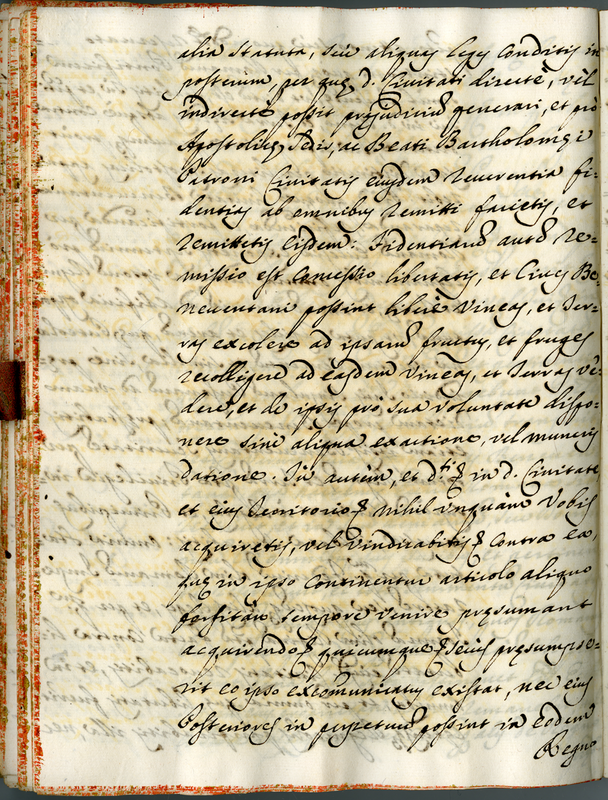 alia statuta, seu aliquas leges Conditis in
posterum, per quę d. Civitati directè, vel
indirectè possit pręjudicium generari, et pro
Apostolicę Sedis, ac Beati Bartholomęi
Patroni Civitatis eiusdem reverentia fi-
dentias ab omnibus remitti facietis, et
remittetis eisdem: Fidentiarum autem re-
missio est Concessio libertatis, et Cives Be-
neventani possint liberè vineas, et Ter-
ras excolere ad ipsarum fructus, et fruges
recolligere ad easdem vineas, et Terras vē-
dere, et de ipsis pro sua voluntate dispo-
nere sine aliqua exactione, vel muneris
datione. Tu autem, et in d. Civitate
et eius Territorio nihil unquàm Vobis
acquiretis, vel vindicabitis Contra ea,
quę in ipso Continentur articolo aliquo
forsitàn tempore venire pręsumant
acquirendo quicumque seius pręsumpse-
rit eo ipso excōmunicatus existat, nec eius
Posteriores in perpetuum possint in eodem
Regno